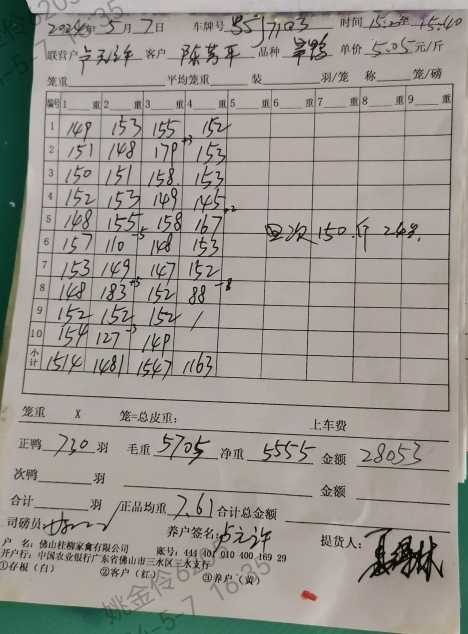 2024年 5月 7日 车牌号 55103 时间 15:20至 15:40
联营户 卢天许 客户 陈 平 品种 单价 5.05元/斤
笼重 平均笼重 装 羽/笼 称 笼/磅
编号 1 重 2 重 3 重 4 重 5 重 6 重 7 重 8 重 9 重
1 149 153 155 152
2 151 148 179 +3 153
3 150 151 158 153
4 152 153 149 145
5 148 155 158 167 +2
6 157 110 -5 148 153
7 153 149 147 152 四次 150.斤 24羽
8 148 183 +5 152 88 -8
9 152 152 152 /
10 154 127 -3 149
小计 1514 1481 1547 1163
笼重 X 笼=总皮重: 上车费
正鸭 730 羽 毛重 5705 净重 5555 金额 28053
次鸭 羽 金额
合计 羽 正品均重 7.61 合计总金额
司磅员 养户签名: 提货人:
户 名: 佛山桂柳家禽有限公司 账号: 444 401 010 400 169 29
开户行: 中国农业银行广东省佛山市三水区三水支行
①存根(白) ②客户(红) ③养户(黄)
姚金伶
16:35